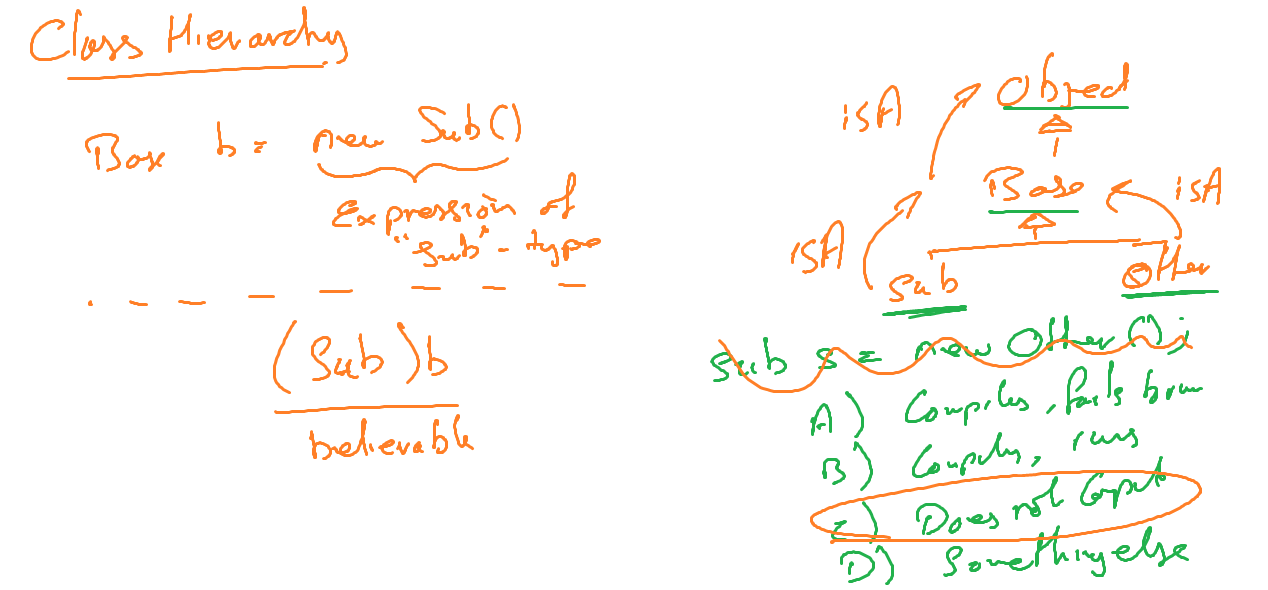 Class Hierarchy
Box b = new Sub()
Expression of
"Sub" - type
(Sub)b
believable
Object
isA
Base
isA
isA
Sub
Other
Sub s = new Other();
A) Compiles, fails
B) Compiles, runs
Does not
D) Something else